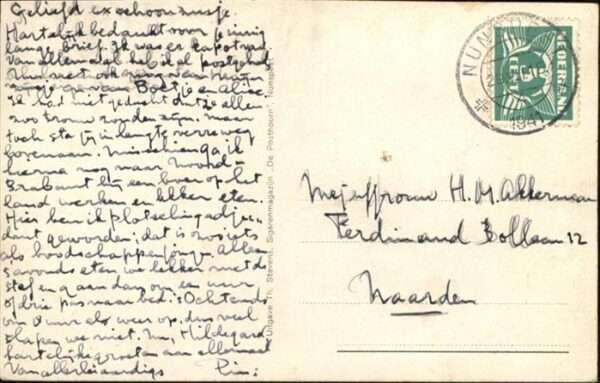 Geliefd ex schoonzusje
Hartelijk bedankt voor je innig
lange brief. Ik was er kapot van
Van allemaal heb ik al post gehad
van Bob je en Alice.
Ik had niet gedacht dat ze allen
zoo trouw zouden zijn. maar
toch sta jij in lengte verreweg
bovenaan. Misschien ga ik
hierna nog naar Noord-
Brabant bij een boer op het
land werken en lekker eten.
Hier ben ik plotseling adju-
dant geworden; dat is zooiets
als boodschappenjongen. Alleen
's avonds eten we lekker met de
staf en gaan dan om een uur
of drie pas naar bed. 's Ochtends
om 8 uur als weer op, dus veel
slapen we niet. Nu, Hildegard
hartelijke groeten aan allemaal
Van allerlei aardigs Pim:
Uitgave Th. Stevens, Sigarenmagazijn „De Posthoorn", Nunspeet
NUN
1941
NEDERLAND
CENT
Mejuffrouw H. M. Akkerman
Ferdinand Bollaan 12
Naarden